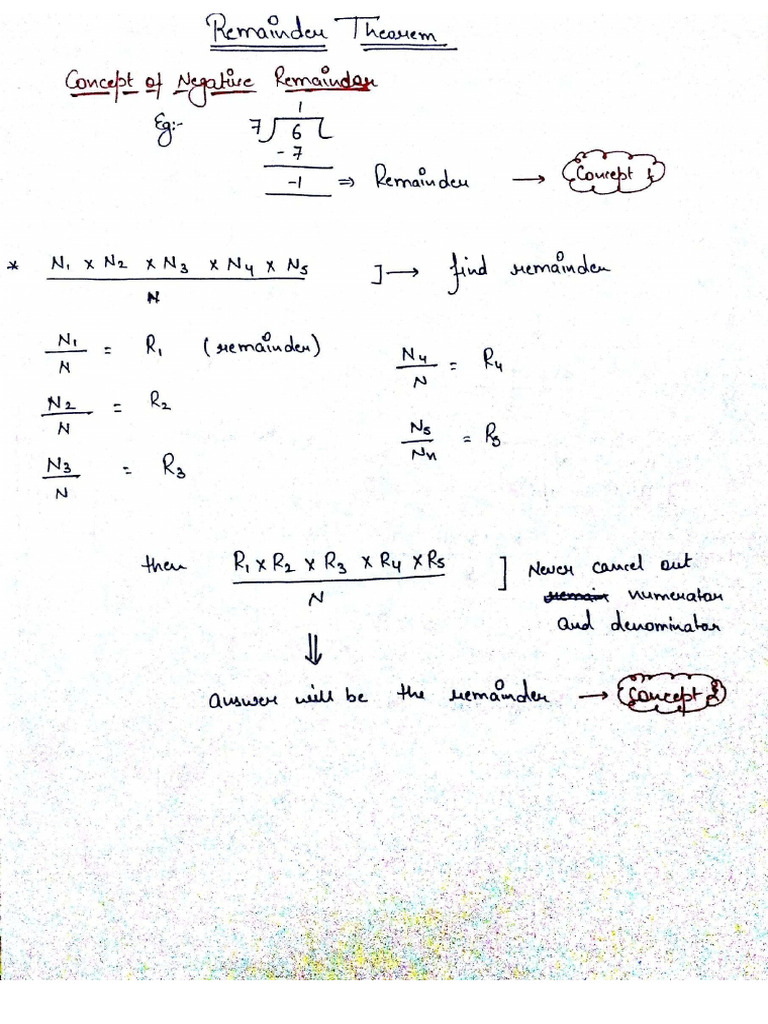 Remainder Theorem
Concept of Negative Remainder
1
Eg:- 7 ) 6 (
- 7
-1 ⇒ Remainder → Concept 1
* N1 x N2 x N3 x N4 x N5 / N ] → find remainder
N1 / N = R1 (remainder)
N4 / N = R4
N2 / N = R2
N5 / Nn = R5
N3 / N = R3
then R1 x R2 x R3 x R4 x R5 / N ] Never cancel out
numerator
and denominator
⇓
answer will be the remainder → Concept 2